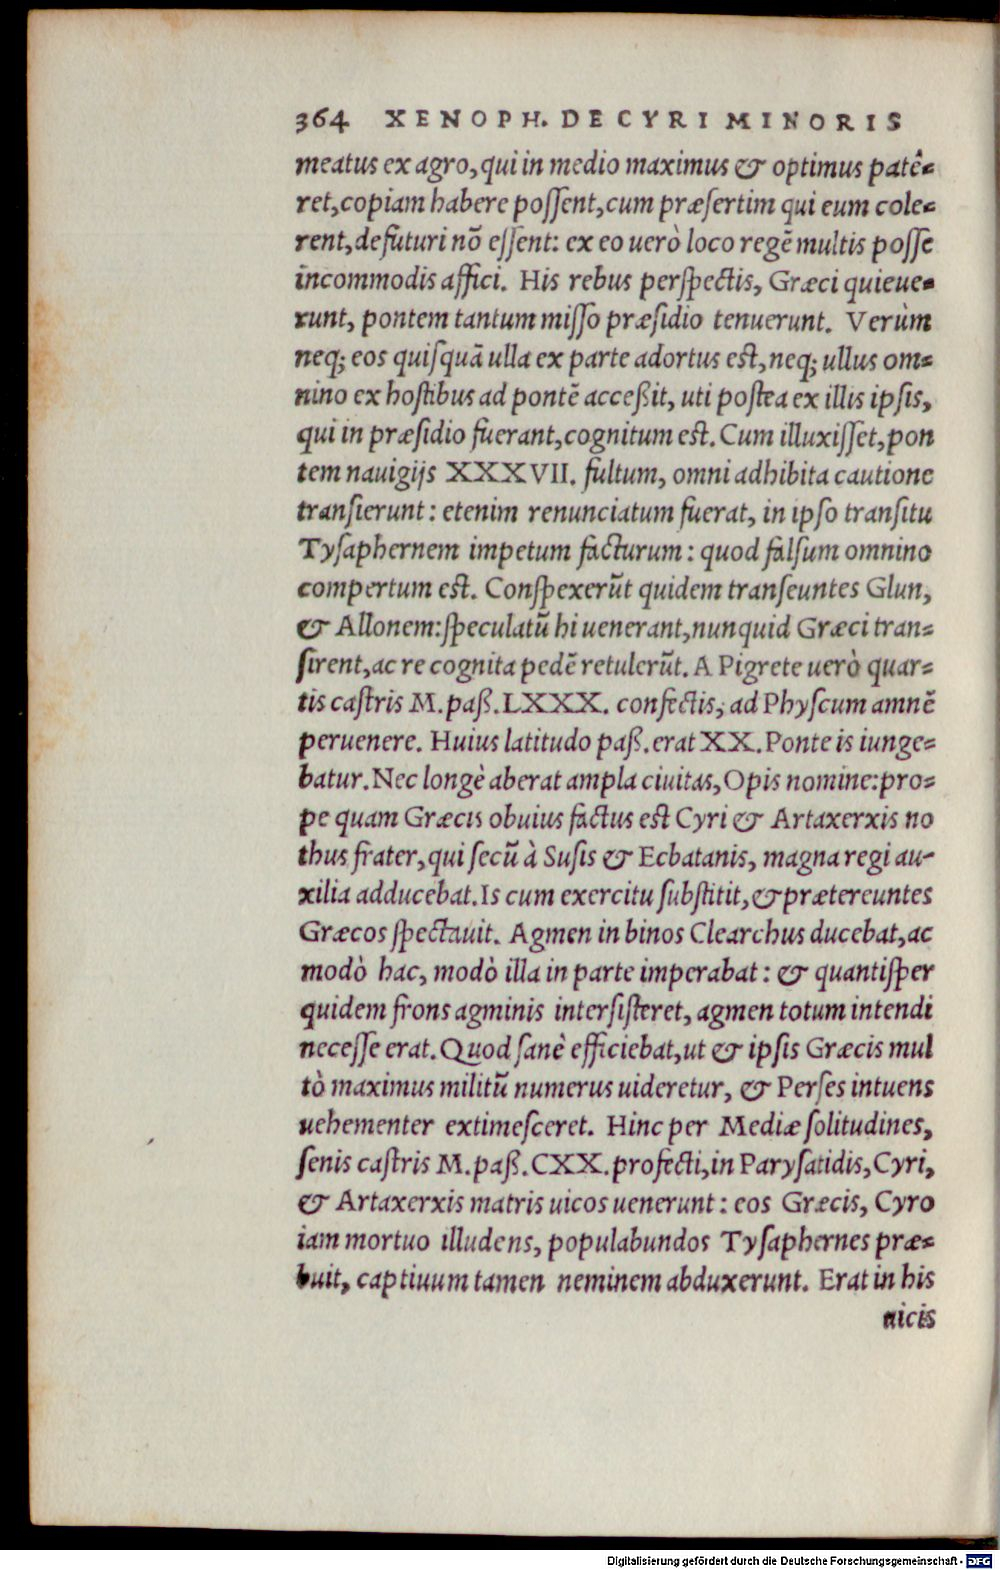 364 XENOPH. DE CYRI MINORIS
meatus ex agro, qui in medio maximus & optimus patê-
ret, copiam habere possent, cum præsertim qui eum cole-
rent, defuturi nō essent: ex eo uerò loco regē multis posse
incommodis affici. His rebus perspectis, Græci quieue-
runt, pontem tantum misso præsidio tenuerunt. Verùm
neq; eos quisquā ulla ex parte adortus est, neq; ullus om-
nino ex hostibus ad pontē acceßit, uti postea ex illis ipsis,
qui in præsidio fuerant, cognitum est. Cum illuxisset, pon
tem nauigijs XXXVII. fultum, omni adhibita cautione
transierunt: etenim renunciatum fuerat, in ipso transitu
Tysaphernem impetum facturum: quod falsum omnino
compertum est. Conspexerūt quidem transeuntes Glun,
& Allonem: speculatū hi uenerant, nunquid Græci tran-
sirent, ac re cognita pedē retulerūt. A Pigrete uerò quar-
tis castris M. paß. LXXX. confectis, ad Physcum amnē
peruenere. Huius latitudo paß. erat XX. Ponte is iunge-
batur. Nec longè aberat ampla ciuitas, Opis nomine: pro-
pe quam Græcis obuius factus est Cyri & Artaxerxis no
thus frater, qui secū à Susis & Ecbatanis, magna regi au-
xilia adducebat. Is cum exercitu substitit, & prætereuntes
Græcos spectauit. Agmen in binos Clearchus ducebat, ac
modò hac, modò illa in parte imperabat: & quantisper
quidem frons agminis intersisteret, agmen totum intendi
necesse erat. Quod sanè efficiebat, ut & ipsis Græcis mul
tò maximus militū numerus uideretur, & Perses intuens
uehementer extimesceret. Hinc per Mediæ solitudines,
senis castris M. paß. CXX. profecti, in Parysatidis, Cyri,
& Artaxerxis matris uicos uenerunt: eos Græcis, Cyro
iam mortuo illudens, populabundos Tysaphernes præ-
buit, captiuum tamen neminem abduxerunt. Erat in his
uicis
Digitalisierung gefördert durch die Deutsche Forschungsgemeinschaft - DFG